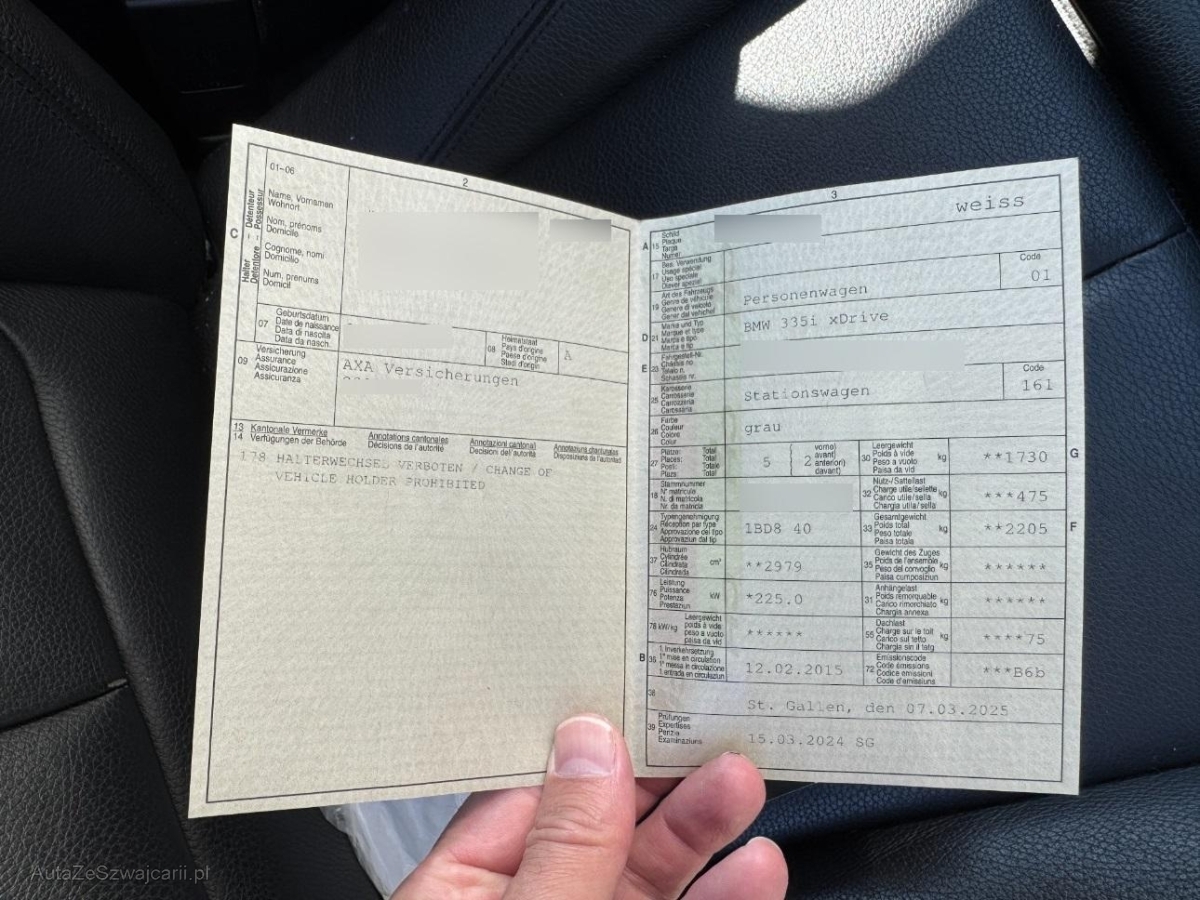 2
01-06
C
Halter
Détenteur
Detentore
Possessur
Name, Vornamen
Wohnort
Nom, prénoms
Domicile
Cognome, nomi
Domicilio
Num, prenums
Domicil
07
Geburtsdatum
Date de naissance
Data di nascita
Data da nasch.
08
Heimatstaat
Pays d'origine
Paese d'origine
Stadi d'origin
A
09
Versicherung
Assurance
Assicurazione
Assicuranza
AXA Versicherungen
13 Kantonale Vermerke
14 Verfügungen der Behörde
Annotations cantonales
Décisions de l'autorité
Annotazioni cantonali
Decisioni dell'autorità
Annotaziuns chantunalas
Disposiziuns da l'autoritad
178 HALTERWECHSEL VERBOTEN / CHANGE OF
VEHICLE HOLDER PROHIBITED
3
A 15
Schild
Plaque
Targa
Numer
weiss
17
Bes. Verwendung
Usage spécial
Uso speciale
Diever spezial
19
Art des Fahrzeugs
Genre de véhicule
Genere di veicolo
Gener dal vehichel
Personenwagen
Code
01
D 21
Marke und Typ
Marque et type
Marca e tipo
Marca e tip
BMW 335i xDrive
E 23
Fahrgestell-Nr.
Châssis no
Telaio n.
Schassis nr.
25
Karosserie
Carrosserie
Carrozzeria
Carossaria
Stationswagen
Code
161
26
Farbe
Couleur
Colore
Colur
grau
27
Plätze: Total
Places: Total
Posti: Totale
Plazs: Total
5
2
vorne)
avant)
anteriori)
davant)
30
Leergewicht
Poids à vide
Peso a vuoto
Paisa da vid
kg
**1730
G
18
Stammnummer
N° matricule
N. di matricola
Nr. da matricla
32
Nutz-/Sattellast
Charge utile/sellette
Carico utile/sella
Chargia utila/sella
kg
***475
24
Typengenehmigung
Réception par type
Approvazione del tipo
Approvaziun dal tip
1BD8 40
33
Gesamtgewicht
Poids total
Peso totale
Paisa totala
kg
**2205
F
37
Hubraum
Cylindrée
Cilindrata
Cilindrada
cm³
**2979
35
Gewicht des Zuges
Poids de l'ensemble
Peso del convoglio
Paisa cumposiziun
kg
******
76
Leistung
Puissance
Potenza
Prestaziun
kW
*225.0
31
Anhängelast
Poids remorquable
Carico rimorchiato
Chargia annexa
kg
******
78 kW/kg
Leergewicht
poids à vide
peso a vuoto
paisa da vid
******
55
Dachlast
Charge sur le toit
Carico sul tetto
Chargia sin il tetg
kg
****75
B 36
1. Inverkehrsetzung
1re mise en circulation
1a messa in circolazione
1. entrada en circulaziun
12.02.2015
72
Emissionscode
Code émissions
Codice emissioni
Code d'emissiuns
***B6b
38
St. Gallen, den 07.03.2025
39
Prüfungen
Expertises
Perizie
Examinaziuns
15.03.2024 SG
AutaZeSzwajcarii.pl